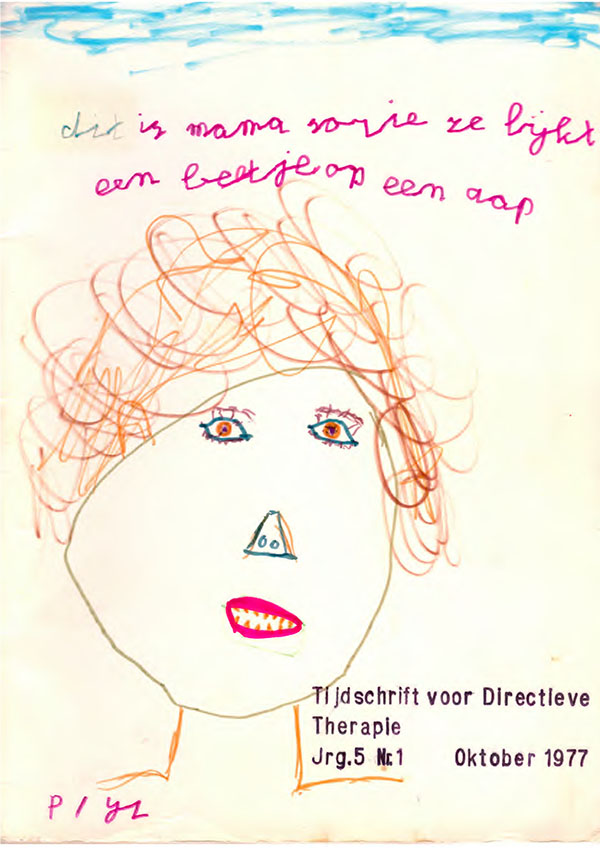 dit is mama sorrie ze lijkt
een beetje op een aap
Tijdschrift voor Directieve
Therapie
Jrg.5 Nr.1 Oktober 1977